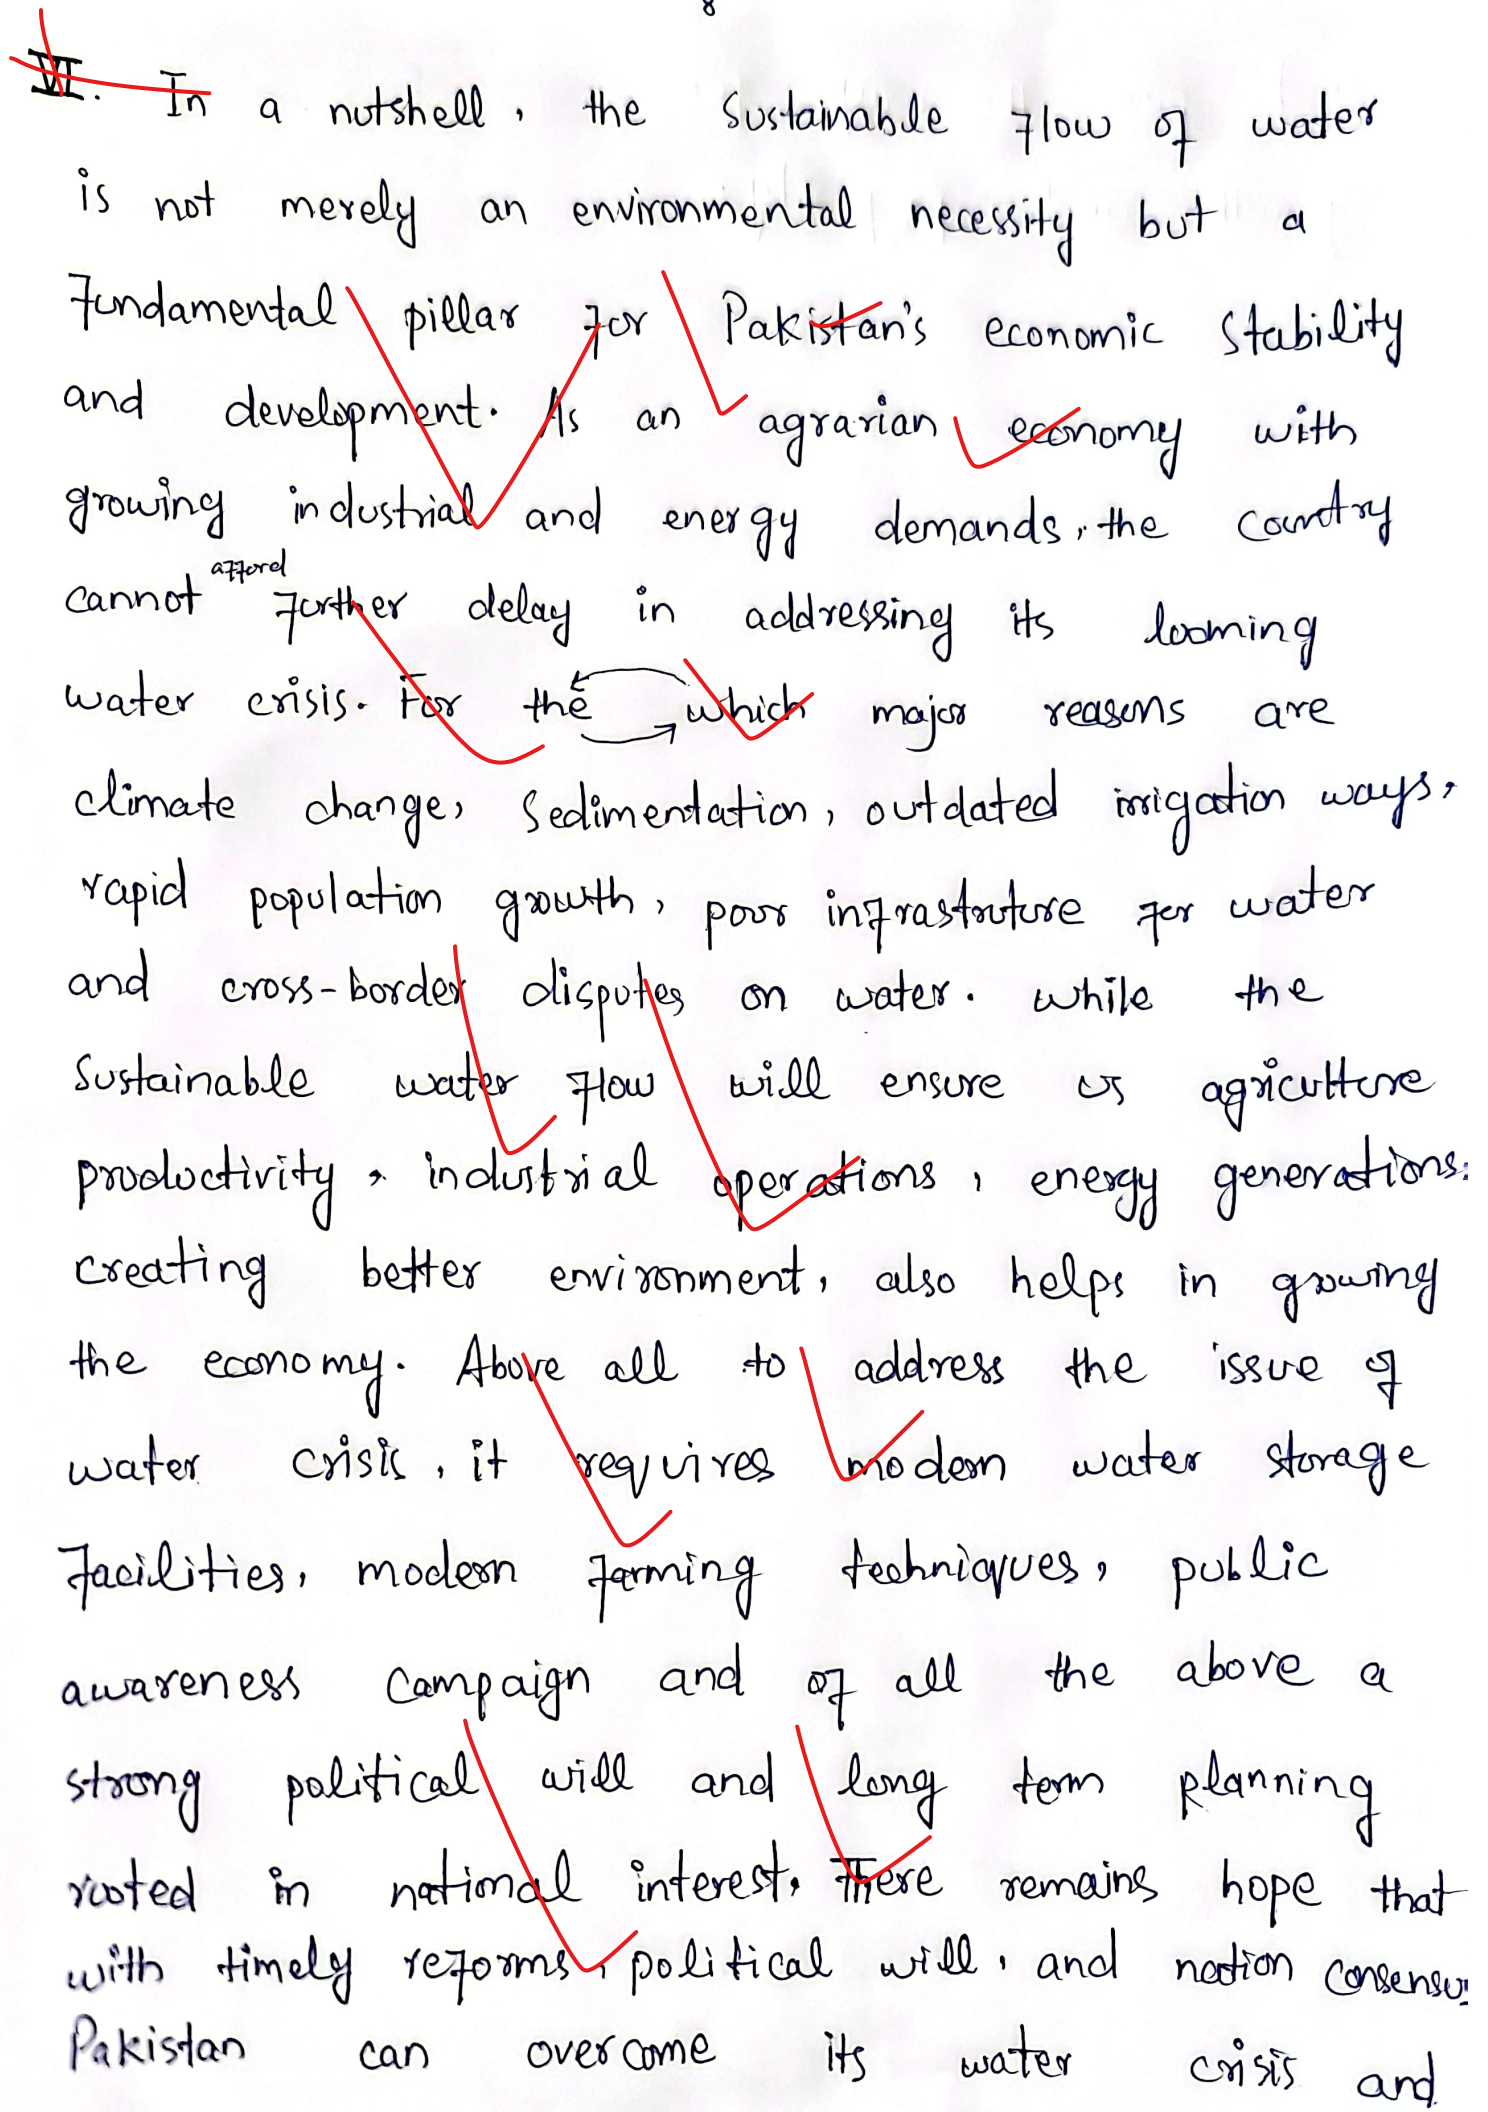 8
VI. In a nutshell, the sustainable flow of water
is not merely an environmental necessity but a
fundamental pillar for Pakistan's economic stability
and development. As an agrarian economy with
growing industrial and energy demands, the country
cannot afford further delay in addressing its looming
water crisis. For the which major reasons are
climate change, sedimentation, outdated irrigation ways,
rapid population growth, poor infrastruture for water
and cross-border disputes on water. while the
sustainable water flow will ensure us agriculture
productivity, industrial operations, energy generations.
creating better environment, also helps in growing
the economy. Above all to address the issue of
water crisis, it requires modern water storage
facilities, modern farming techniques, public
awareness campaign and of all the above a
strong political will and long term planning
rooted in national interest. There remains hope that
with timely reforms, political will, and nation consensus
Pakistan can overcome its water crisis and